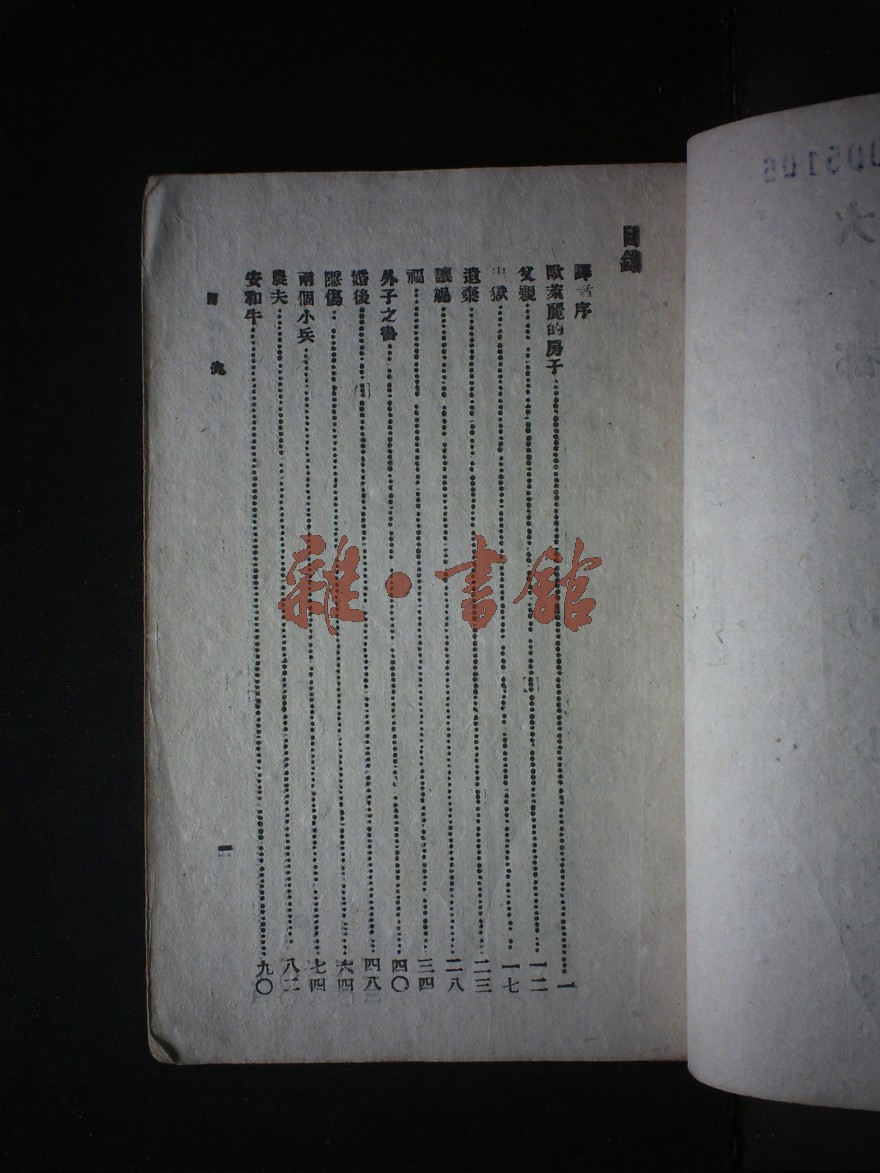 目錄
譯者序
歐 麗的房子 一
父親 一二
出獄 一七
遺棄 二三
讓 二八
福 三四
外子之書 四〇
婚後 四八
隱傷 六四
兩個小兵 七四
農夫 八二
安和牛 九〇
目 錄 一
雜·書館